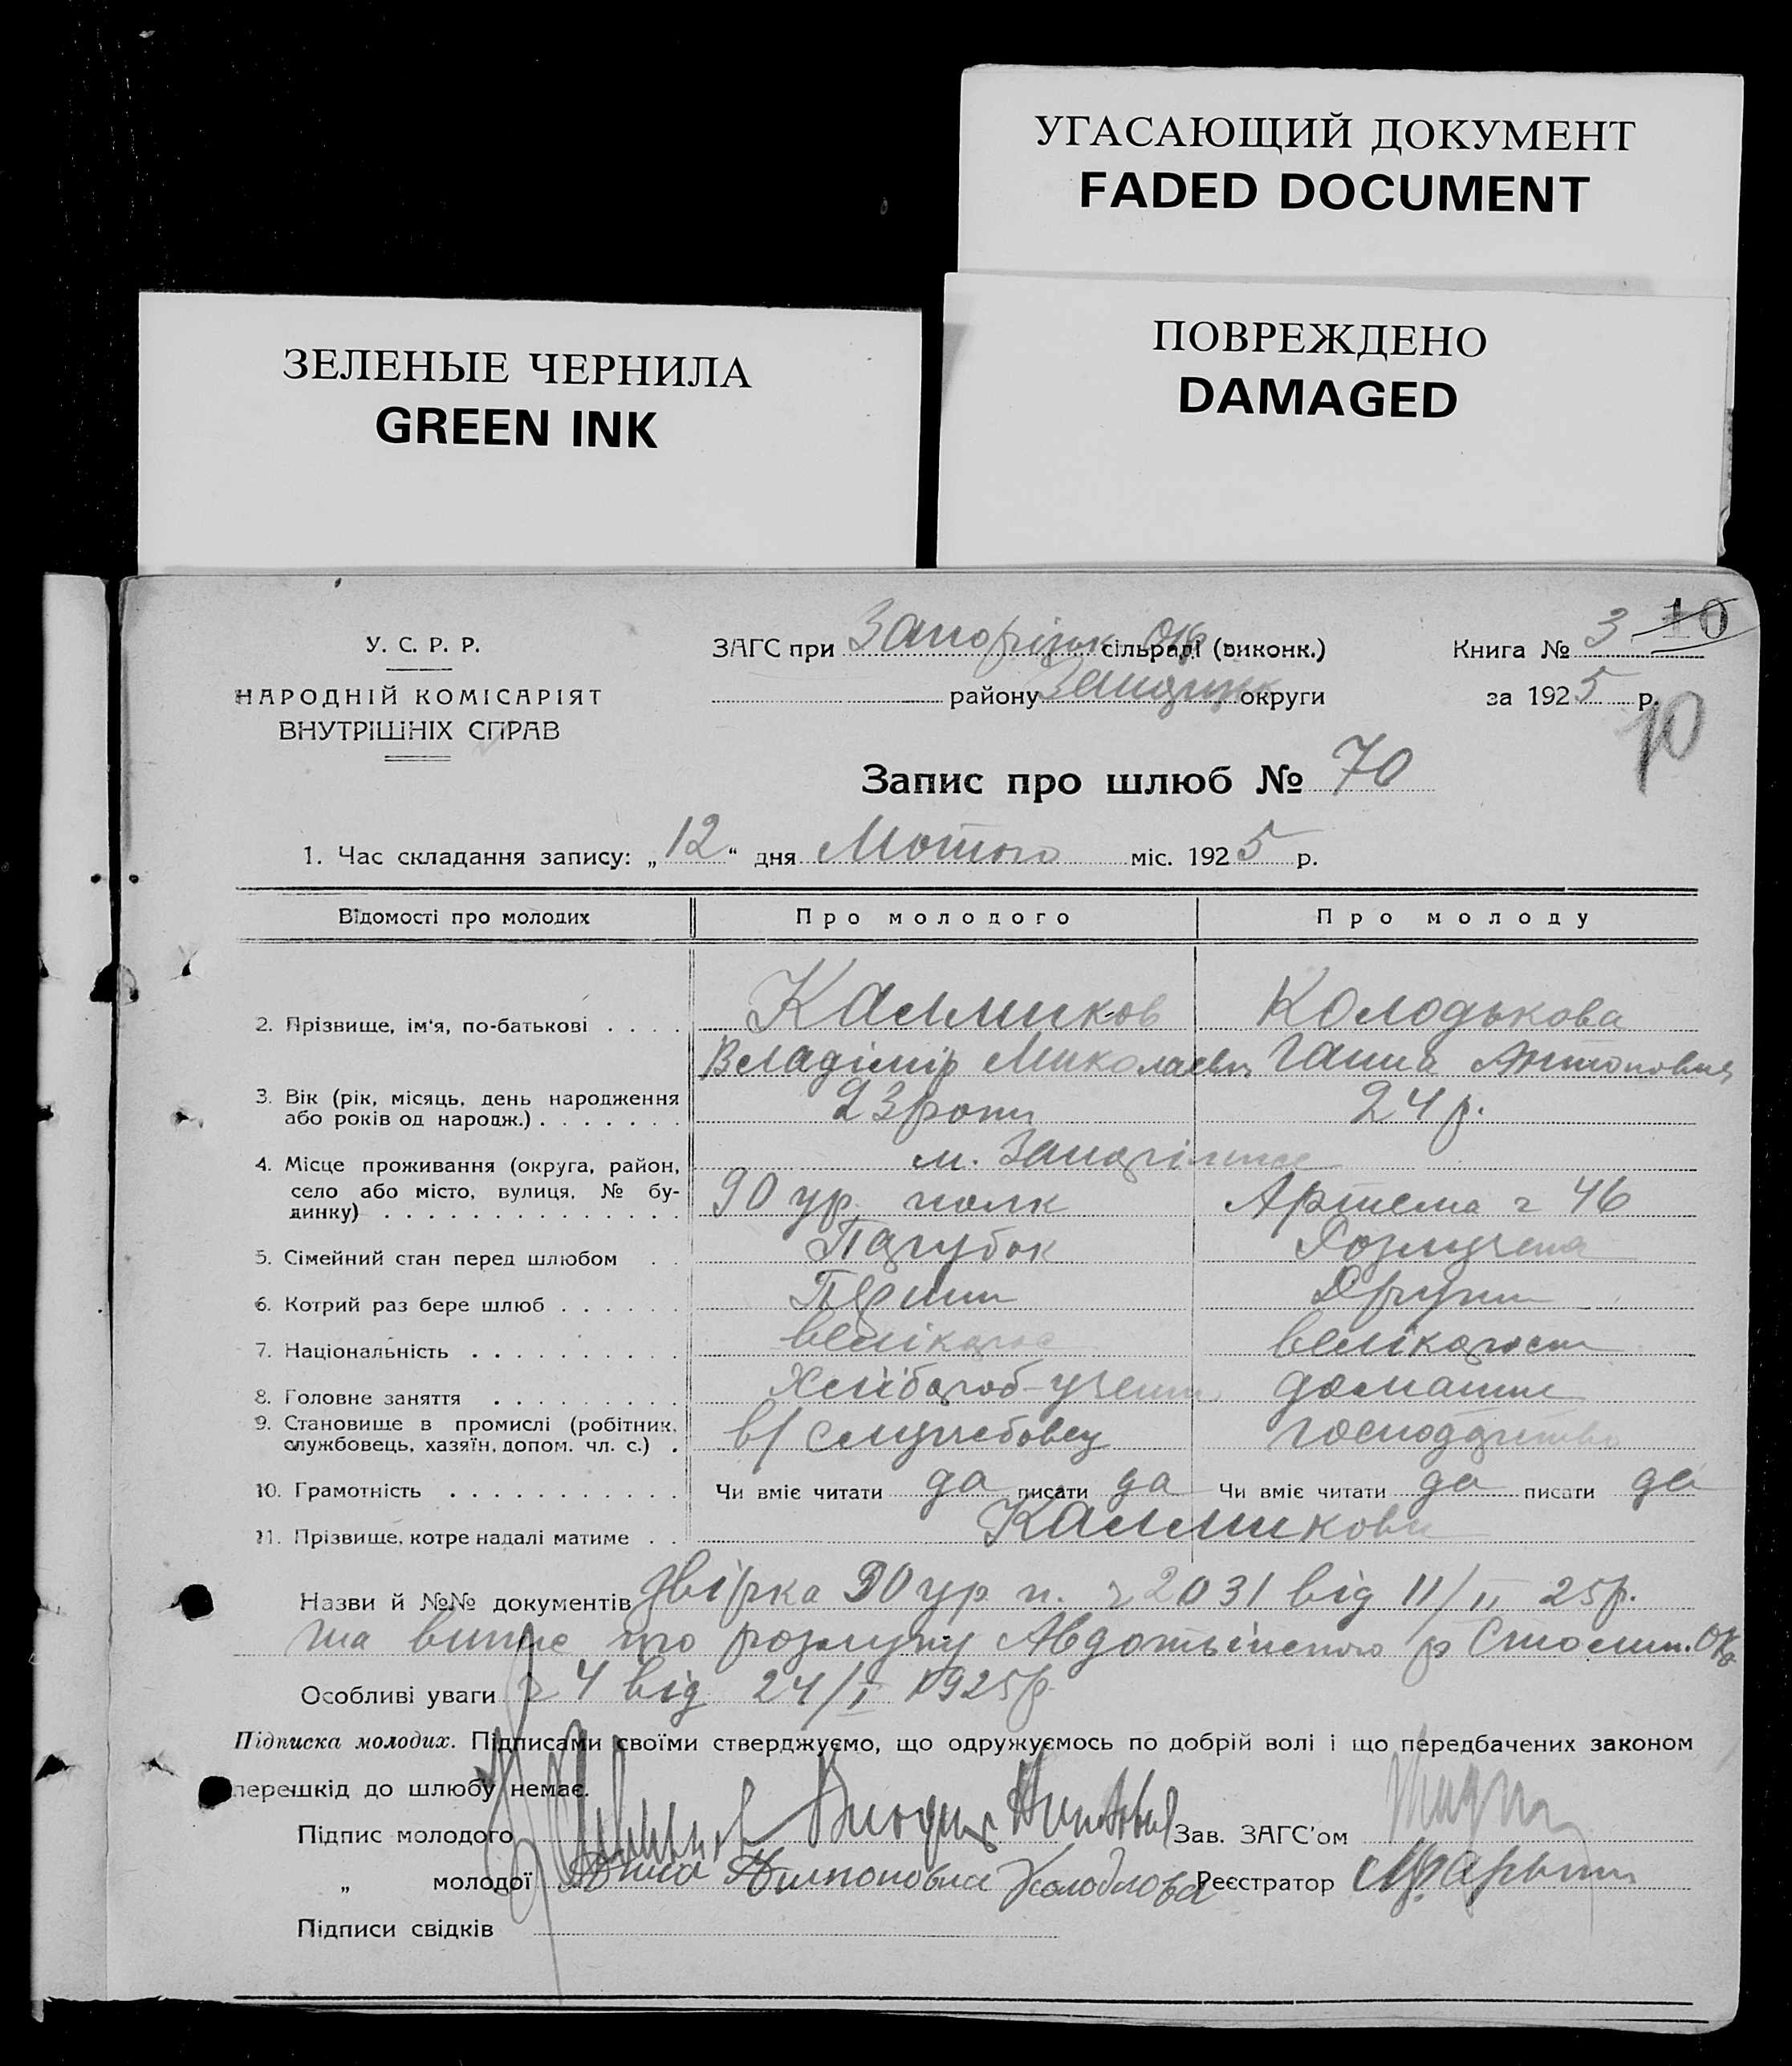 УГАСАЮЩИЙ ДОКУМЕНТ
FADED DOCUMENT
ЗЕЛЕНЫЕ ЧЕРНИЛА
GREEN INK
ПОВРЕЖДЕНО
DAMAGED
У. С. Р. Р.
НАРОДНІЙ КОМІСАРІЯТ
ВНУТРІШНІХ СПРАВ
ЗАГС при сільраді (виконк.)
району округи
Книга № 3 10
за 1925 р.
10
Запис про шлюб № 70
1. Час складання запису: „12“ дня Лютого міс. 1925 р.
Відомості про молодих Про молодого Про молоду
2. Прізвище, ім'я, по-батькові . . . . Калмиков Колодькова
Владімір Миколаєвич Ганна Антоновна
3. Вік (рік, місяць, день народження
або років од народж.) . . . . . . . 23 роки 24 р.
4. Місце проживання (округа, район,
село або місто, вулиця, № бу-
динку) . . . . . . . . . . . . . . .
м. Запоріжжє
90 ур. полк Артема 46
5. Сімейний стан перед шлюбом . . Парубок Розлучена
6. Котрий раз бере шлюб . . . . . . Перший Другий
7. Національність . . . . . . . . . . великорос
8. Головне заняття . . . . . . . . . Хліборób-учень домашнє
9. Становище в промислі (робітник,
службовець, хазяїн, допом. чл. с.) . в/службовец господарство
10. Грамотність . . . . . . . . . . . Чи вміє читати да писати да Чи вміє читати да писати да
11. Прізвище, котре надалі матиме . . Калмикови
Назви й №№ документів 90 ур. п. 2031 від 11/II 25р.
та про розлуку
Особливі уваги 4 від 24/I 1925р.
Підписка молодих. Підписами своїми стверджуємо, що одружуємось по добрій волі і що передбачених законом
перешкід до шлюбу немає.
Підпис молодого Зав. ЗАГС'ом
„ молодої Анна Антоновна Колодкова Реєстратор
Підписи свідків